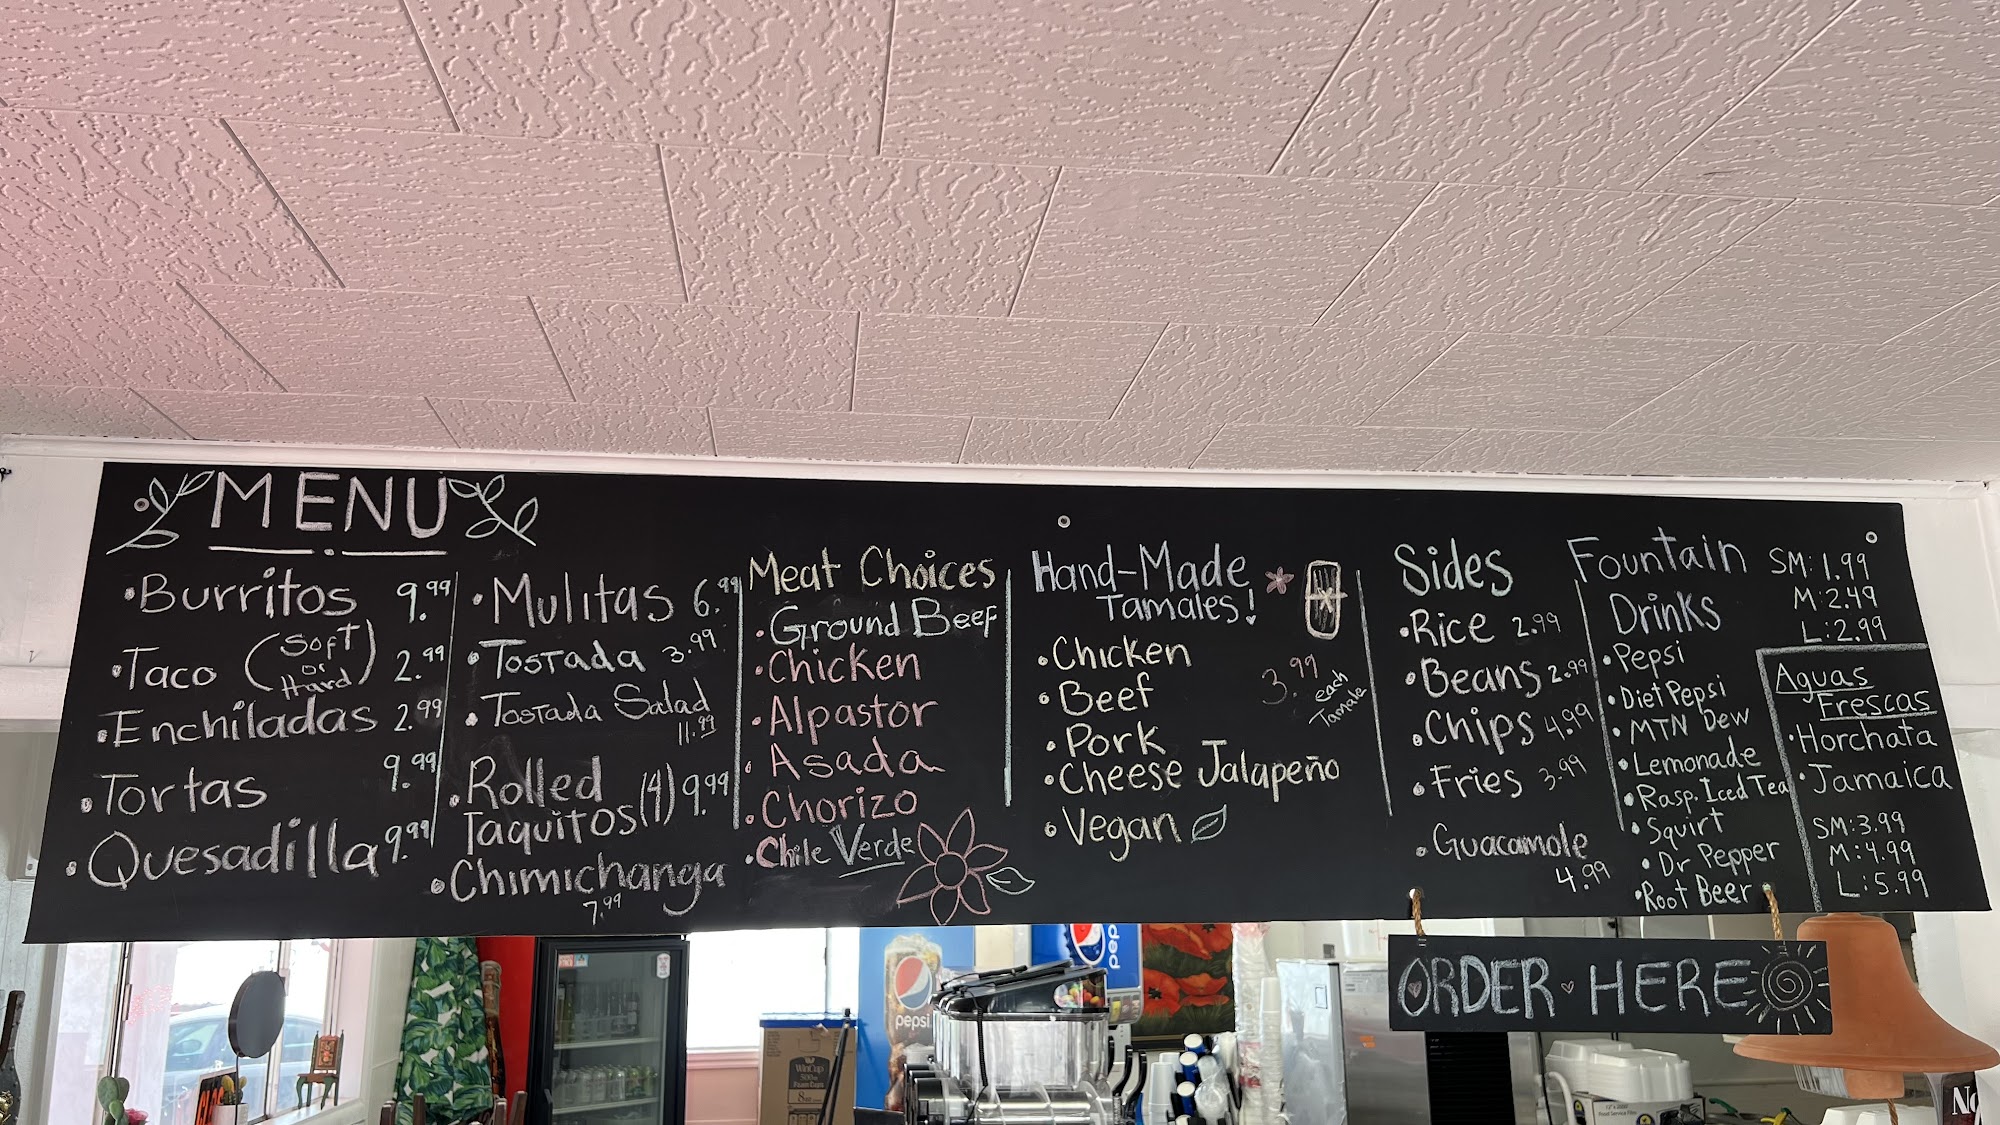 MENU
• Burritos 9.99
• Taco (Soft or Hard) 2.99
• Enchiladas 2.99
• Tortas 9.99
• Quesadilla 9.99
• Mulitas 6.99
• Tostada 3.99
• Tostada Salad
11.99
• Rolled
Taquitos (4) 9.99
• Chimichanga
7.99
Meat Choices
• Ground Beef
• Chicken
• Alpastor
• Asada
• Chorizo
• Chile Verde
Hand-Made
Tamales!
3.99
each
Tamale
• Chicken
• Beef
• Pork
• Cheese Jalapeño
• Vegan
Sides
• Rice 2.99
• Beans 2.99
• Chips 4.99
• Fries 3.99
• Guacamole
4.99
Fountain
Drinks
SM: 1.99
M: 2.49
L: 2.99
• Pepsi
• Diet Pepsi
• MTN Dew
• Lemonade
• Rasp. Iced Tea
• Squirt
• Dr Pepper
• Root Beer
Aguas
Frescas
• Horchata
• Jamaica
SM: 3.99
M: 4.99
L: 5.99
ORDER HERE
pepsi
pepsi
WinCup